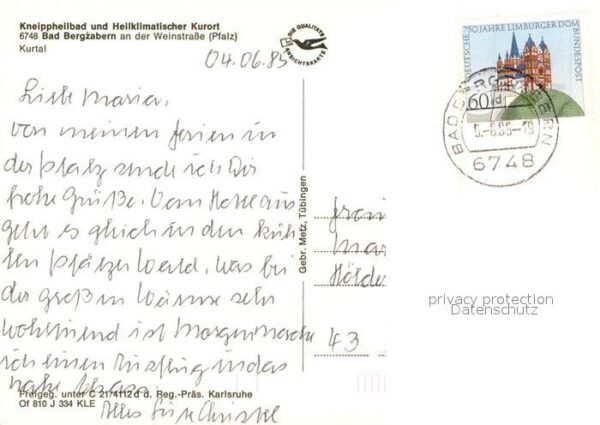 Kneippheilbad und Heilklimatischer Kurort
6748 Bad Bergzabern an der Weinstraße (Pfalz)
Kurtal
DIE QUALITÄTS
ANSICHTSKARTE
04.06.85
Liebe Maria,
von meinen Ferien in
der Pfalz sende ich Dir
frohe Grüße. Vom Hotel aus
geht es gleich in den küh-
len Pfälzer Wald, was bei
der großen Wärme sehr
wohltuend ist. Morgen mache
ich einen Ausflug in das
nahe
Alles Gute Christel
Freigeg. unter C 21/4112 d d. Reg.-Präs. Karlsruhe
Of 810 J 334 KLE
Gebr. Metz, Tübingen
DEUTSCHE BUNDESPOST
750 JAHRE LIMBURGER DOM
60
BAD BERGZABERN
6748
Hölder
43
privacy protection
Datenschutz